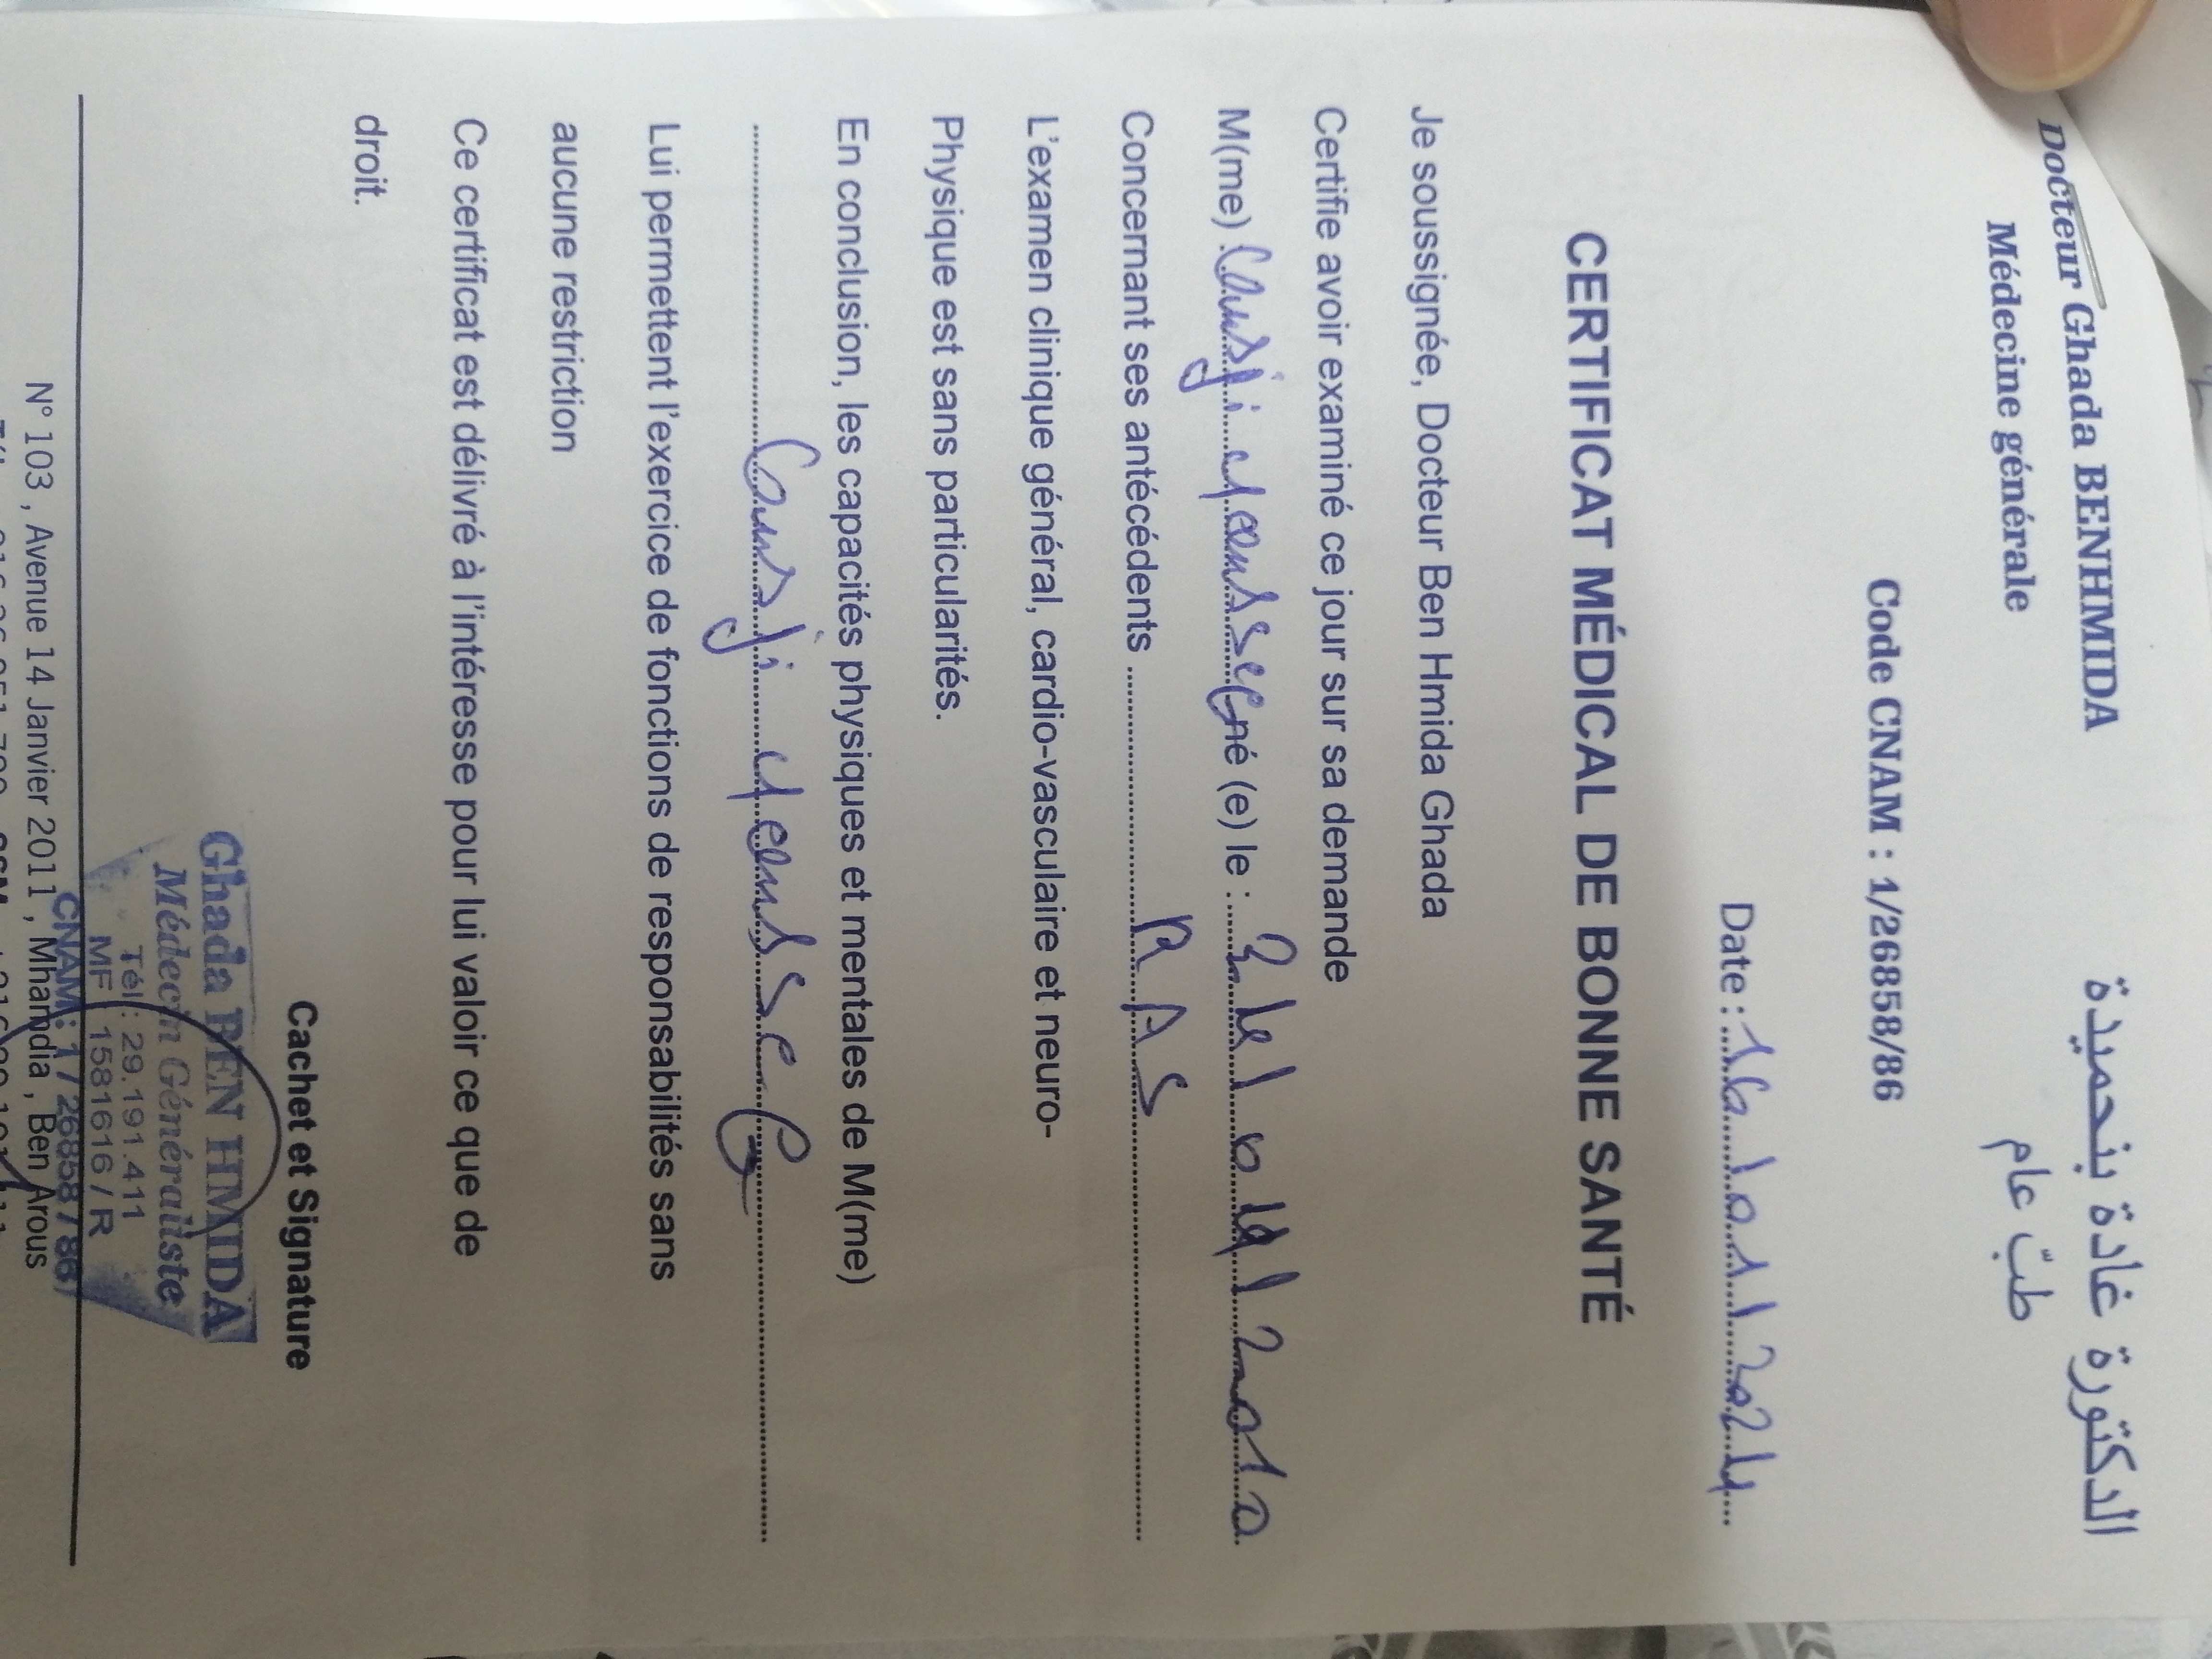 Docteur Ghada BENHMIDA
الدكتورة غادة بنحميدة
Médecine générale
طبّ عام
Code CNAM : 1/26858/86
Date : 16/01/2024
CERTIFICAT MÉDICAL DE BONNE SANTÉ
Je soussignée, Docteur Ben Hmida Ghada
Certifie avoir examiné ce jour sur sa demande
M(me) né (e) le :
Concernant ses antécédents RAS
L'examen clinique général, cardio-vasculaire et neuro-
Physique est sans particularités.
En conclusion, les capacités physiques et mentales de M(me)
Lui permettent l'exercice de fonctions de responsabilités sans
aucune restriction
Ce certificat est délivré à l'intéresse pour lui valoir ce que de
droit.
Cachet et Signature
Ghada BEN HMIDA
Médecin Généraliste
Tél : 29.191.411
MF 1581616 / R
CNAM : 1 / 26858 / 86
N° 103 , Avenue 14 Janvier 2011 , Mhamdia , Ben Arous